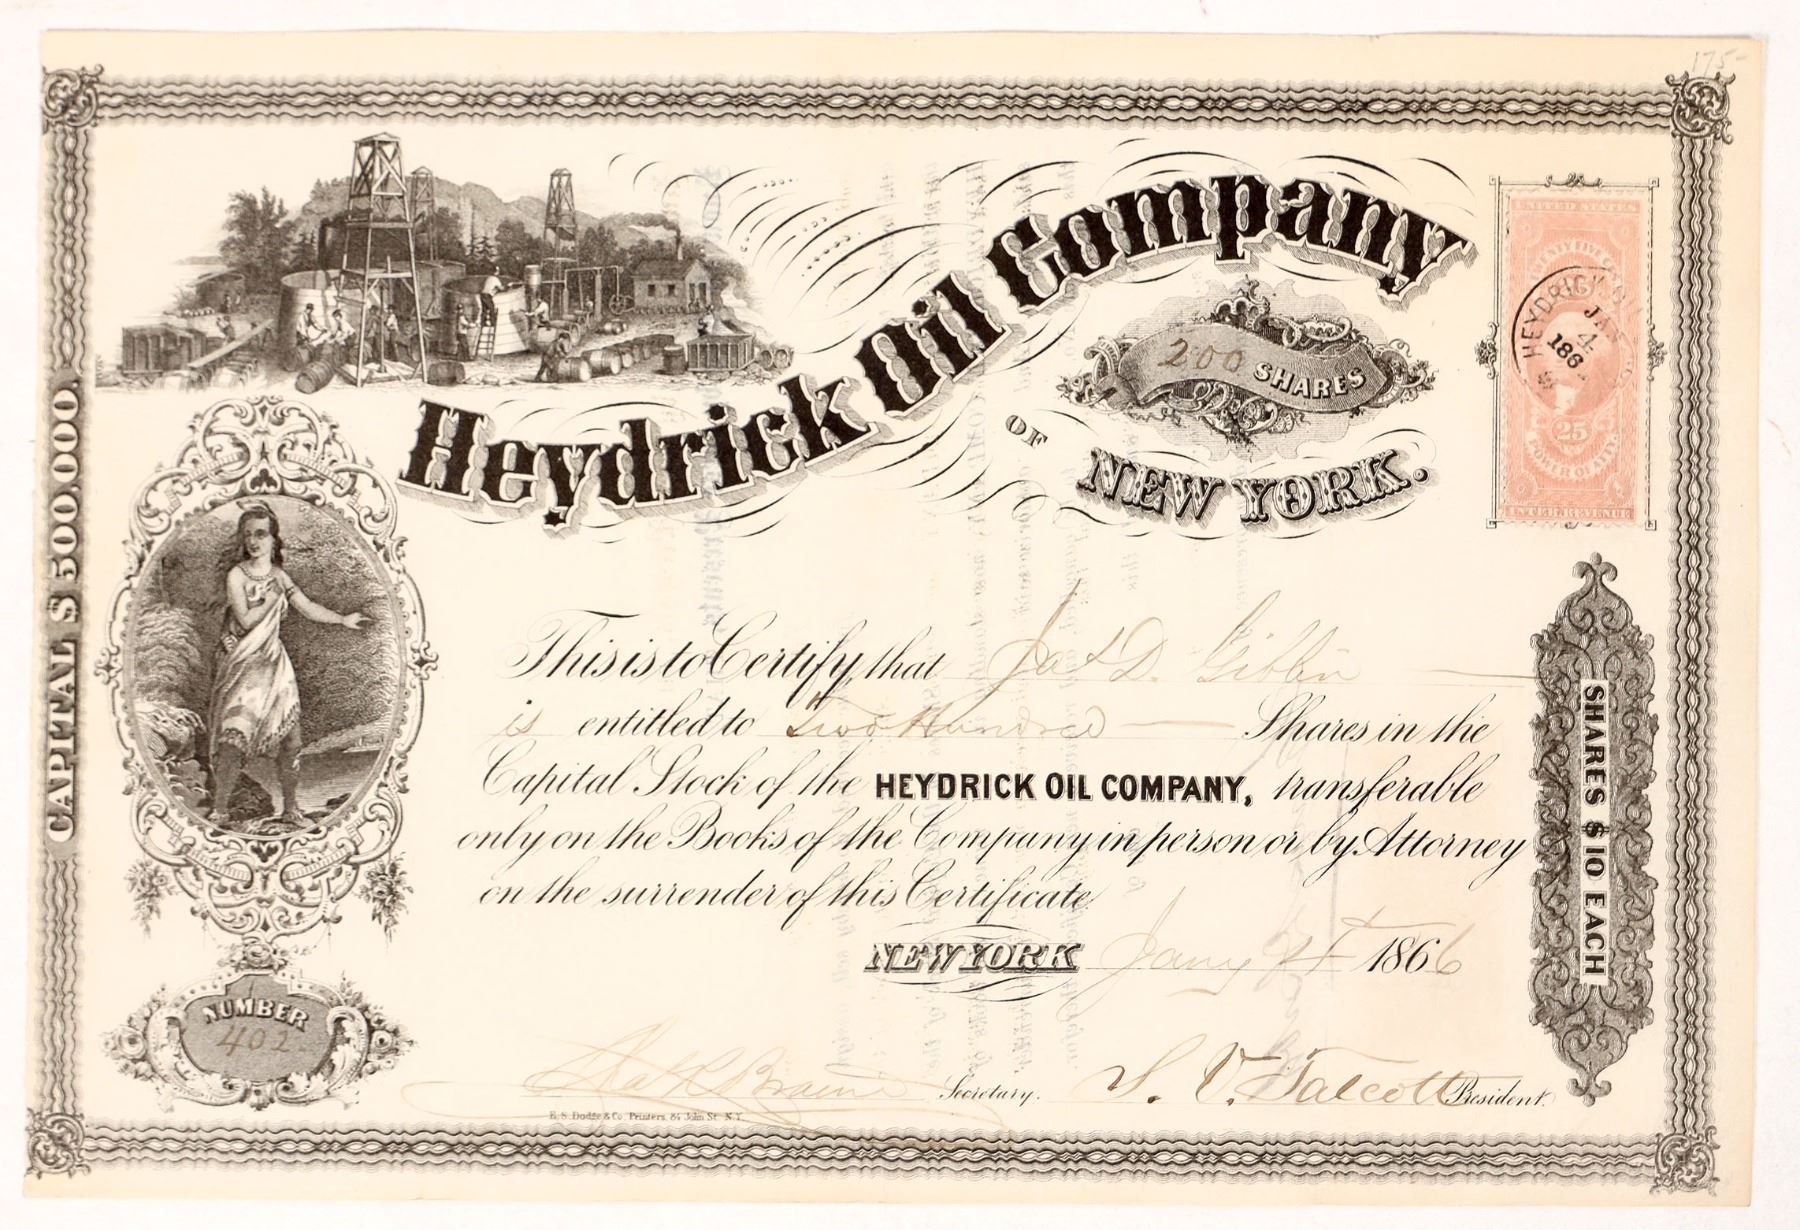 175-
CAPITAL $ 500,000.
Heydrick Oil Company
200 SHARES
OF
NEW YORK.
UNITED STATES
TWENTY FIVE CENTS
HEYDRICK
JAN
4
186
25
POWER OF ATTY.
INTER. REVENUE
This is to Certify, that Jas D. Giblin
is entitled to Two Hundred Shares in the
Capital Stock of the HEYDRICK OIL COMPANY, transferable
only on the Books of the Company in person or by Attorney
on the surrender of this Certificate.
NEW YORK Jany 4 1866
SHARES $10 EACH
NUMBER
402
Braine Secretary. S. V. Talcott President.
E. S. Dodge & Co. Printers, 84 John St. N.Y.